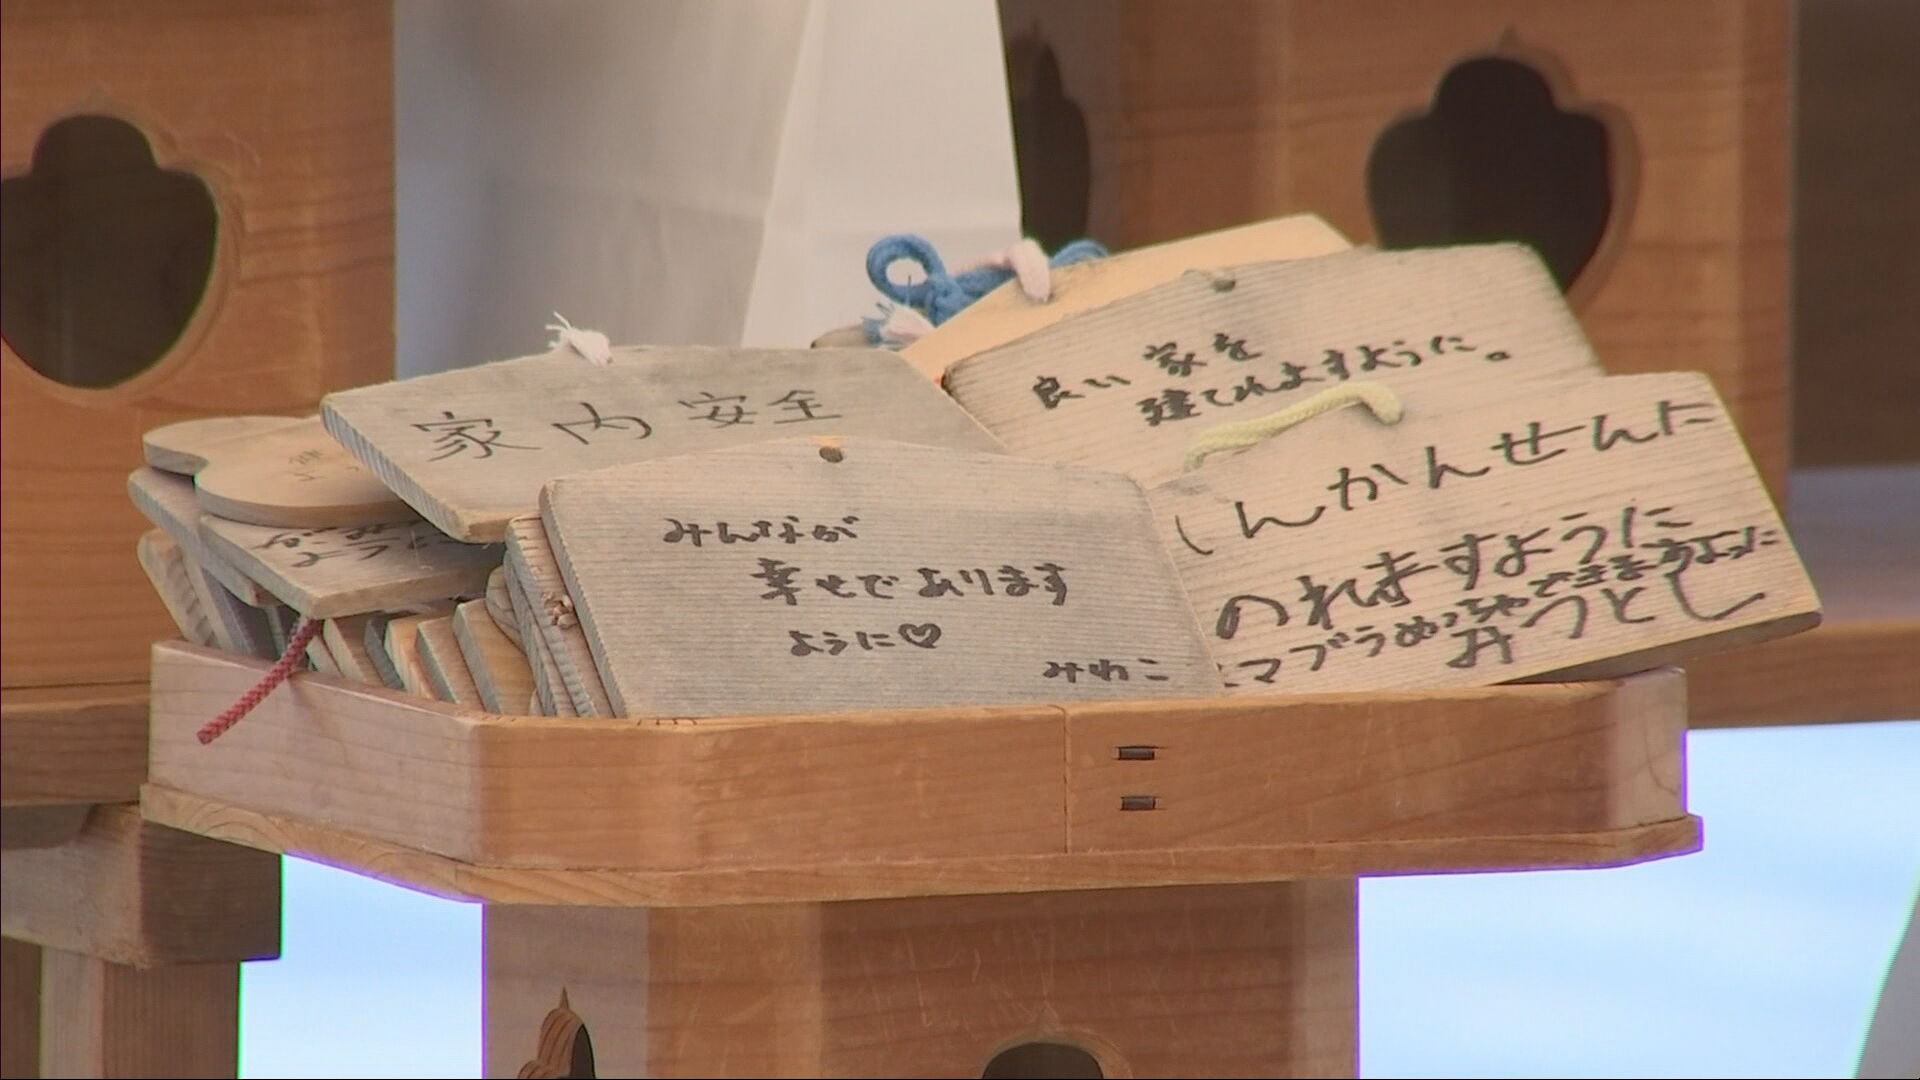 家内安全
良い家を
建てれますように。
みんなが
幸せであります
ように♡
みわこ
しんかんせんに
のれますように
マブラウめっちゃできますように
みつとし
ように